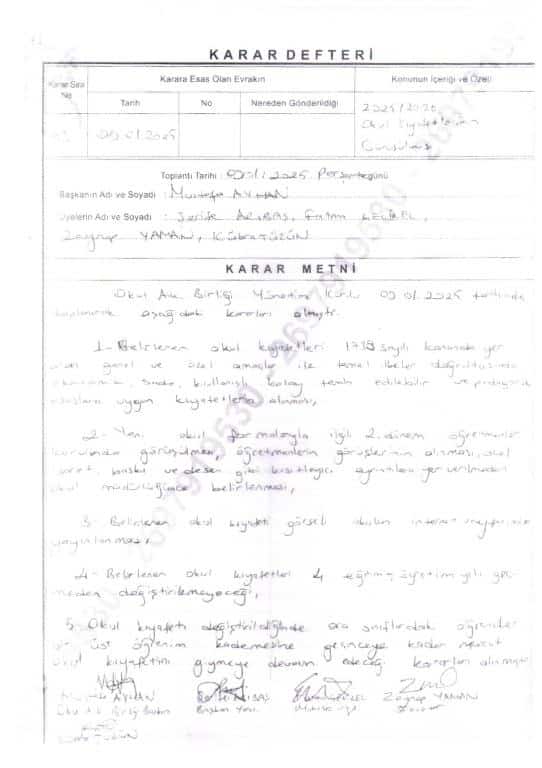 KARAR DEFTERİ
Karar Sıra No
Karara Esas Olan Evrakın
Konunun İçeriği ve Özeti
Tarih
No
Nereden Gönderildiği
2025/2026
Okul Kıyafetlerinin
09.01.2025
Toplantı Tarihi : 09/01/2025 Perşembe günü
Başkanın Adı ve Soyadı : Mustafa AYHAN
Üyelerin Adı ve Soyadı : Şerife Fatma
Zeynep YAMAN, Kübra TÜZÜN
KARAR METNİ
Okul Aile Birliği Yönetim Kurulu 09.01.2025 tarihinde
toplanarak aşağıdaki kararları almıştır.
1- Belirlenen okul kıyafetleri sayılı kanunda yer
alan genel ve özel amaçlar ile temel ilkeler doğrultusunda
sade, kullanışlı kolay temin edilebilir ve
uygun kıyafetlerin alınması,
2- Yeni okul formalarıyla ilgili 2. dönem öğretmenler
kurulunda görüşülmesi, öğretmenlerin görüşlerinin alınması, okul
baskı ve desen gibi kısıtlayıcı ayrıntılara yer verilmeden
okul müdürlüğünce belirlenmesi,
3. Belirlenen okul kıyafeti görseli okulun internet sayfasında
yayınlanması,
4- Belirlenen okul kıyafetleri 4 eğitim-öğretim yılı geç-
meden değiştirilemeyeceği,
5. Okul kıyafeti değiştirildiğinde ara sınıflardaki öğrenciler
bir üst öğrenim kademesine geçinceye kadar mevcut
okul kıyafetini giymeye devam edeceği kararları alınmıştır.
Mustafa AYHAN
Zeynep YAMAN
Okul Aile Birliği Başkanı
Başkan Yard.
2637949530 - 2637949530